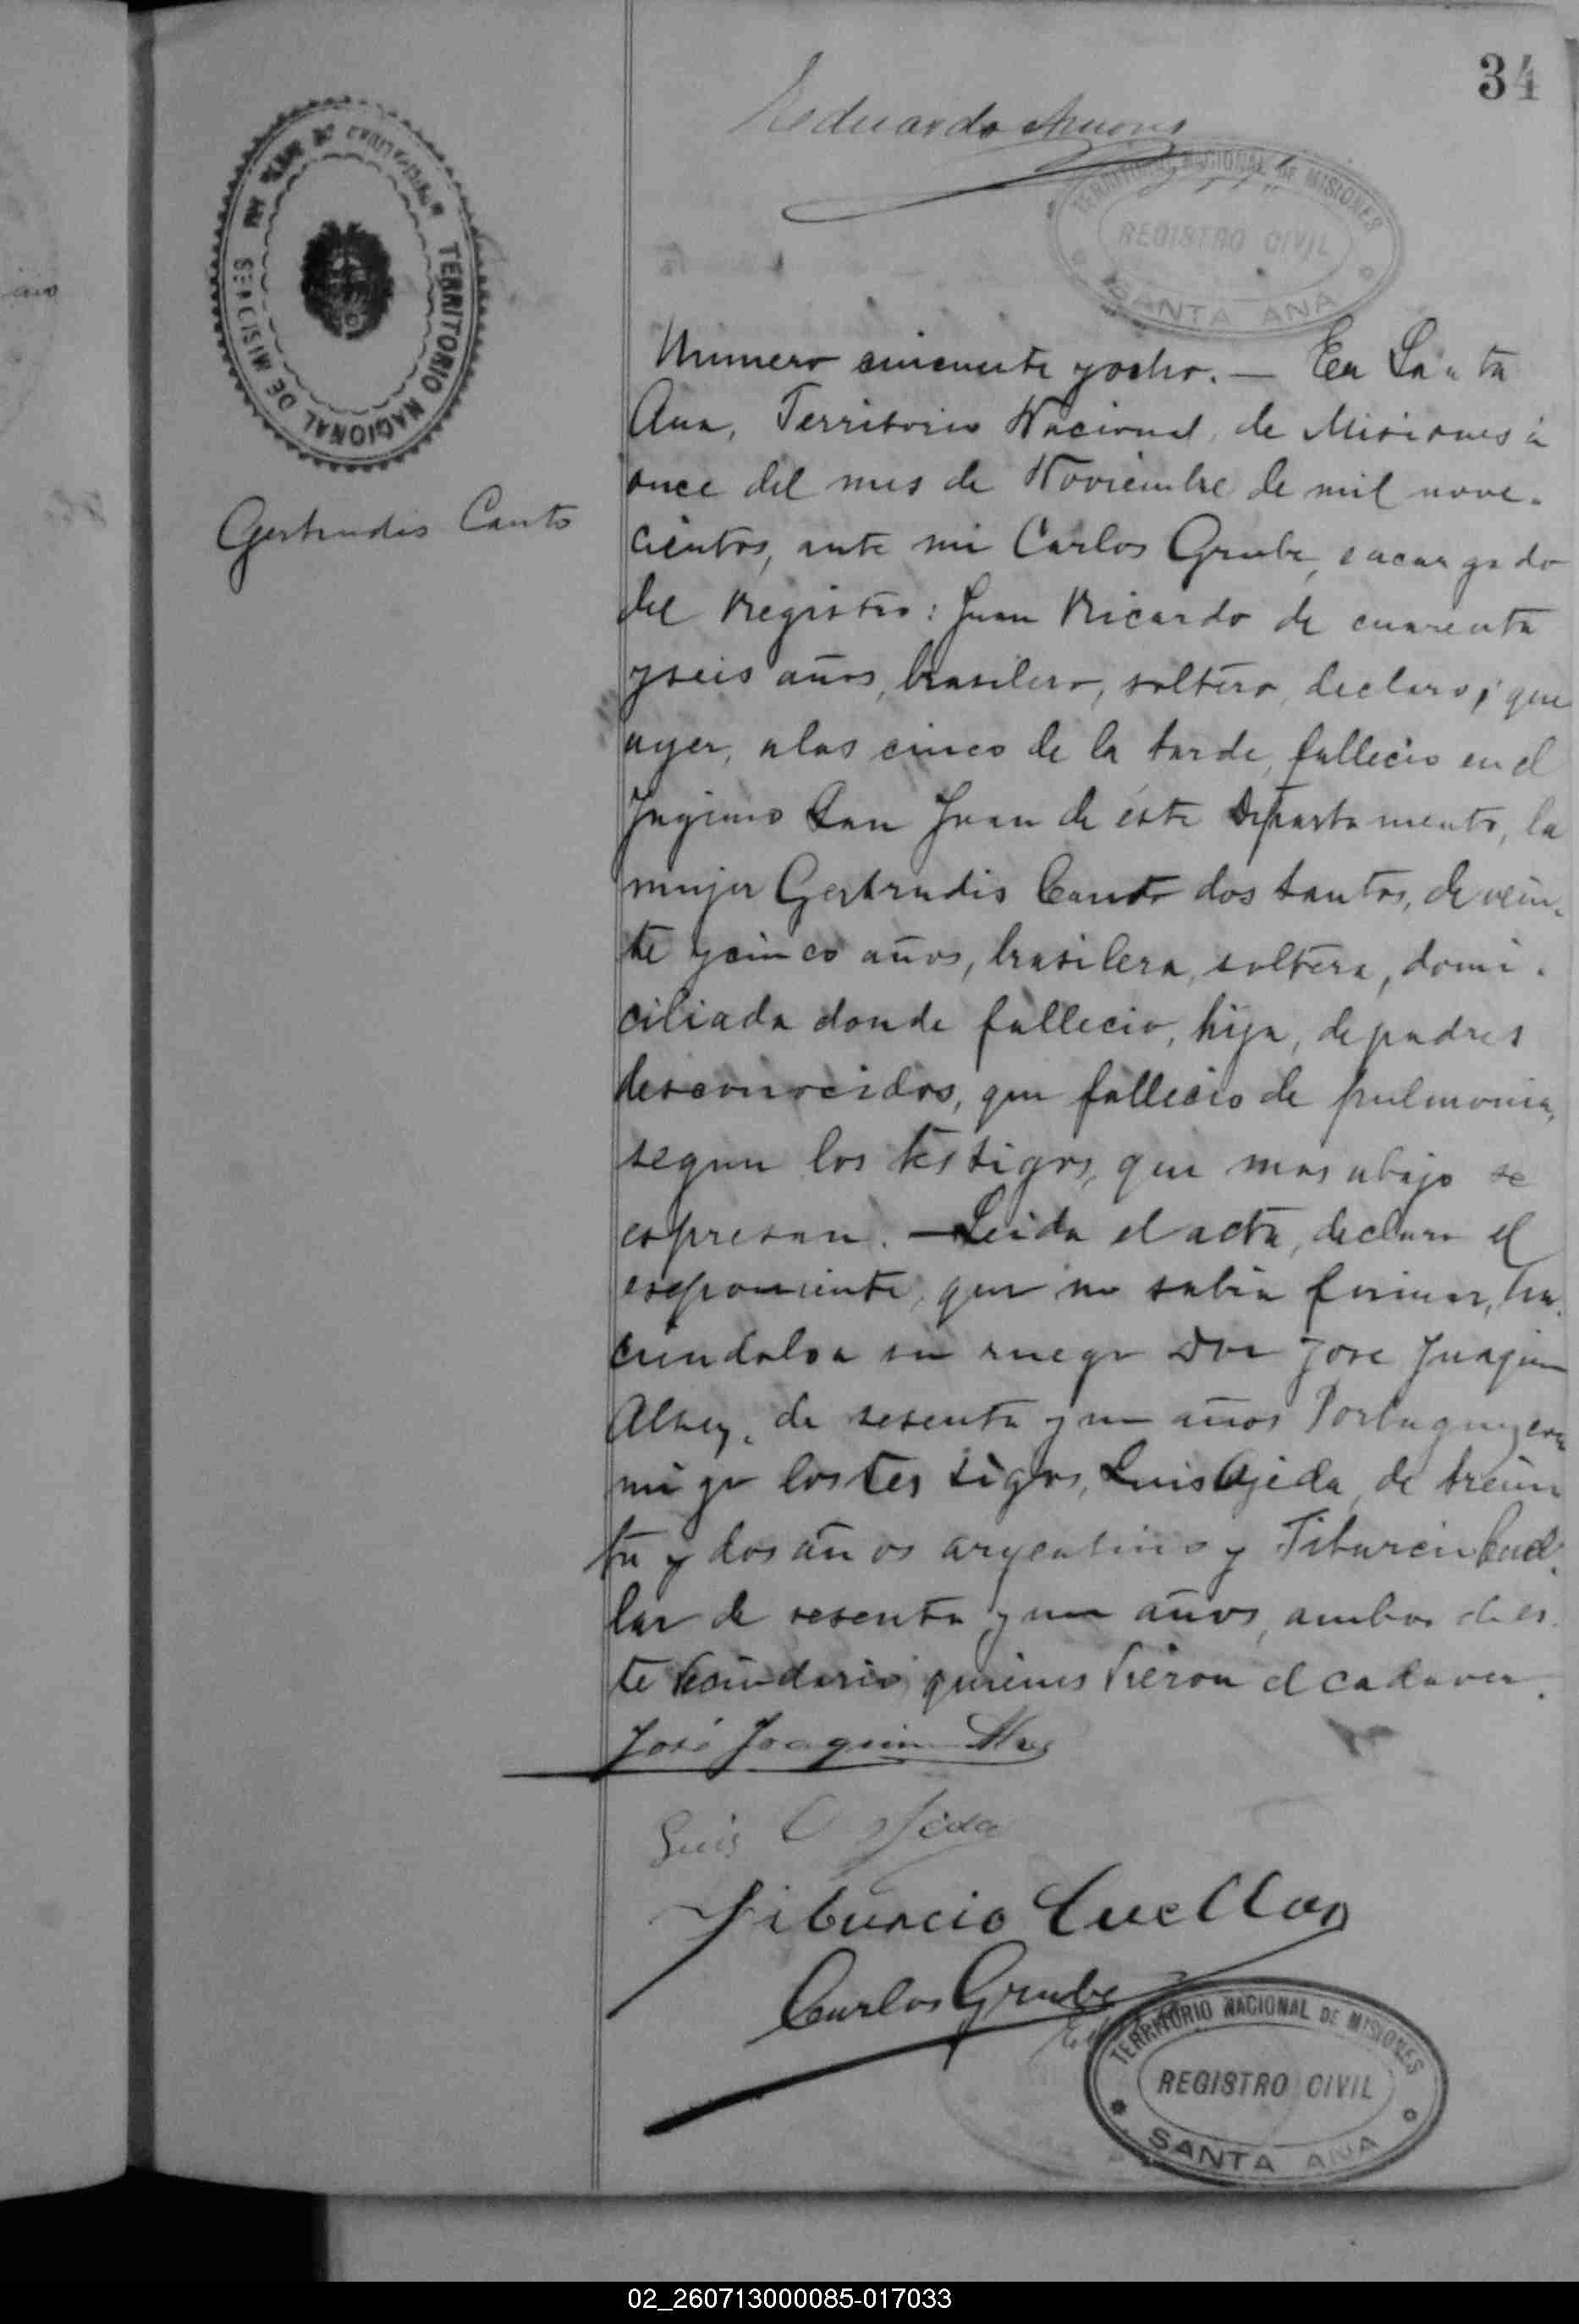 34
Eduardo
TERRITORIO NACIONAL DE MISIONES
REGISTRO CIVIL
SANTA ANA
TERRITORIO NACIONAL DE MISIONES
Gertrudis Canto
Numero cincuenta y ocho. — En Santa
Ana, Territorio Nacional, de Misiones à
once del mes de Noviembre de mil nove-
cientos, ante mi Carlos Grube, encargado
del Registro: Juan Ricardo de cuarenta
y seis años, brasilero, soltero, declaro; que
ayer, a las cinco de la tarde, fallecio en el
Ingenio San Juan de este Departamento, la
mujer Gertrudis Canto dos Santos, de vein-
te y cinco años, brasilera, soltera, domi-
ciliada donde fallecio, hija, de padres
desconocidos, que fallecio de pulmonia,
segun los testigos, que mas abajo se
espresan. — Leida el acta, declaro el
esponiente, que no sabia firmar, ha-
ciendolo a su ruego Don Jose Juaquin
de sesenta y un años Portuguez con
migo los testigos, Luis Ojeda, de trein
ta y dos años argentino y Tiburcio Cuel-
lar de sesenta y un años, ambos de es-
te vecindario quienes vieron el cadaver.
José Joaquin
Luis Ojeda
Tiburcio Cuellar
Carlos Grube
TERRITORIO NACIONAL DE MISIONES
REGISTRO CIVIL
SANTA ANA
02_260713000085-017033